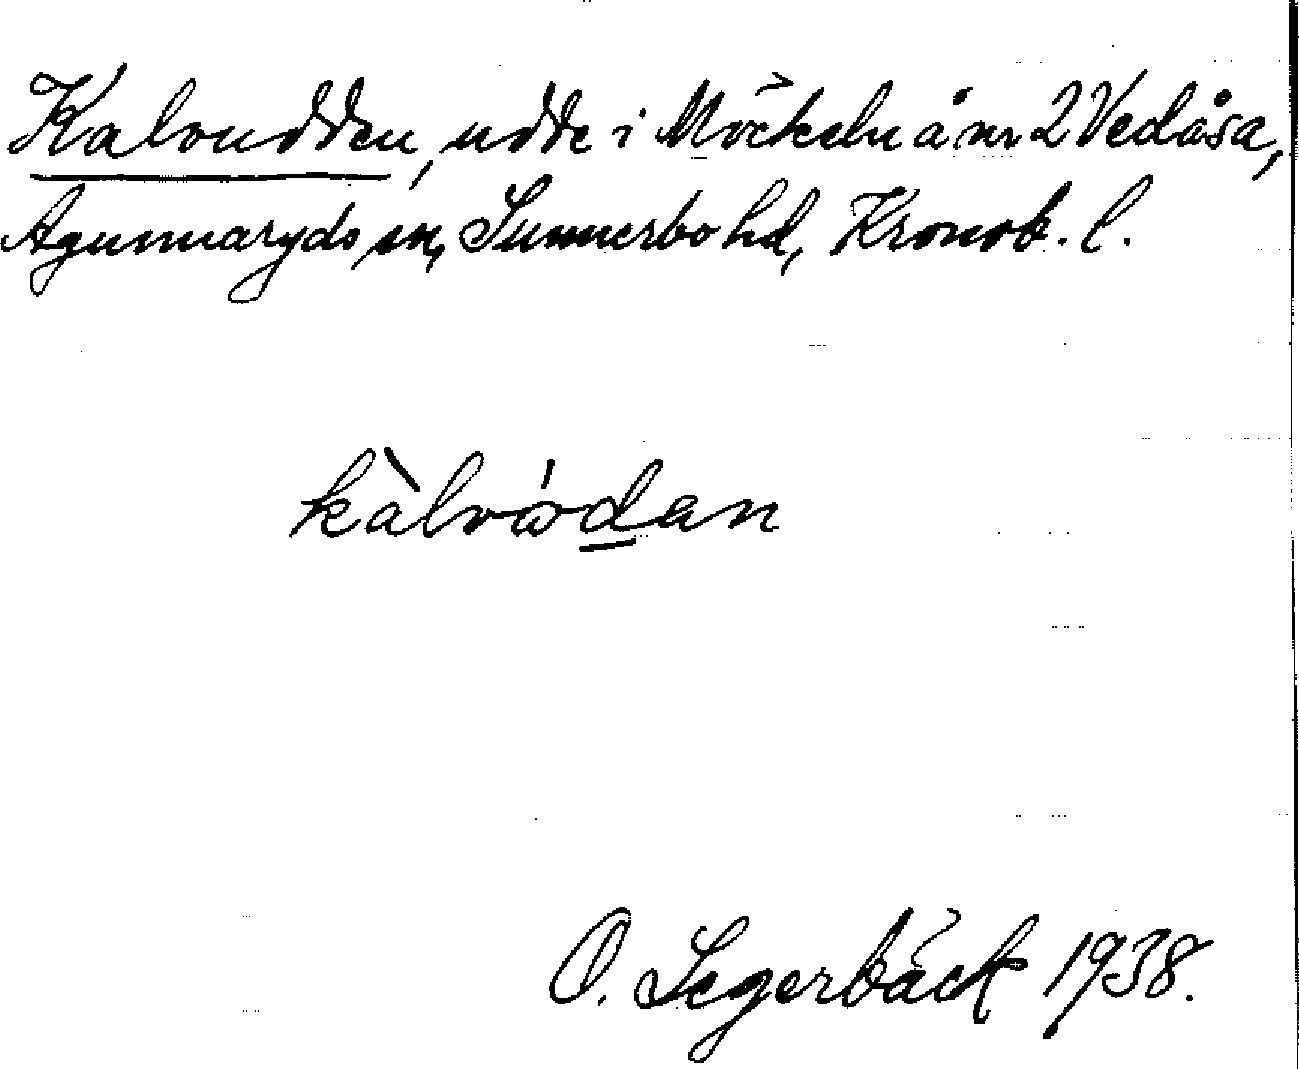 Kalvudden, udde i Möckeln å nr 2 Vedåsa,
Agunnaryds sn, Sunnerbo hd, Kronob. l.
kàlvώdan
O. Segerbäck 1938.